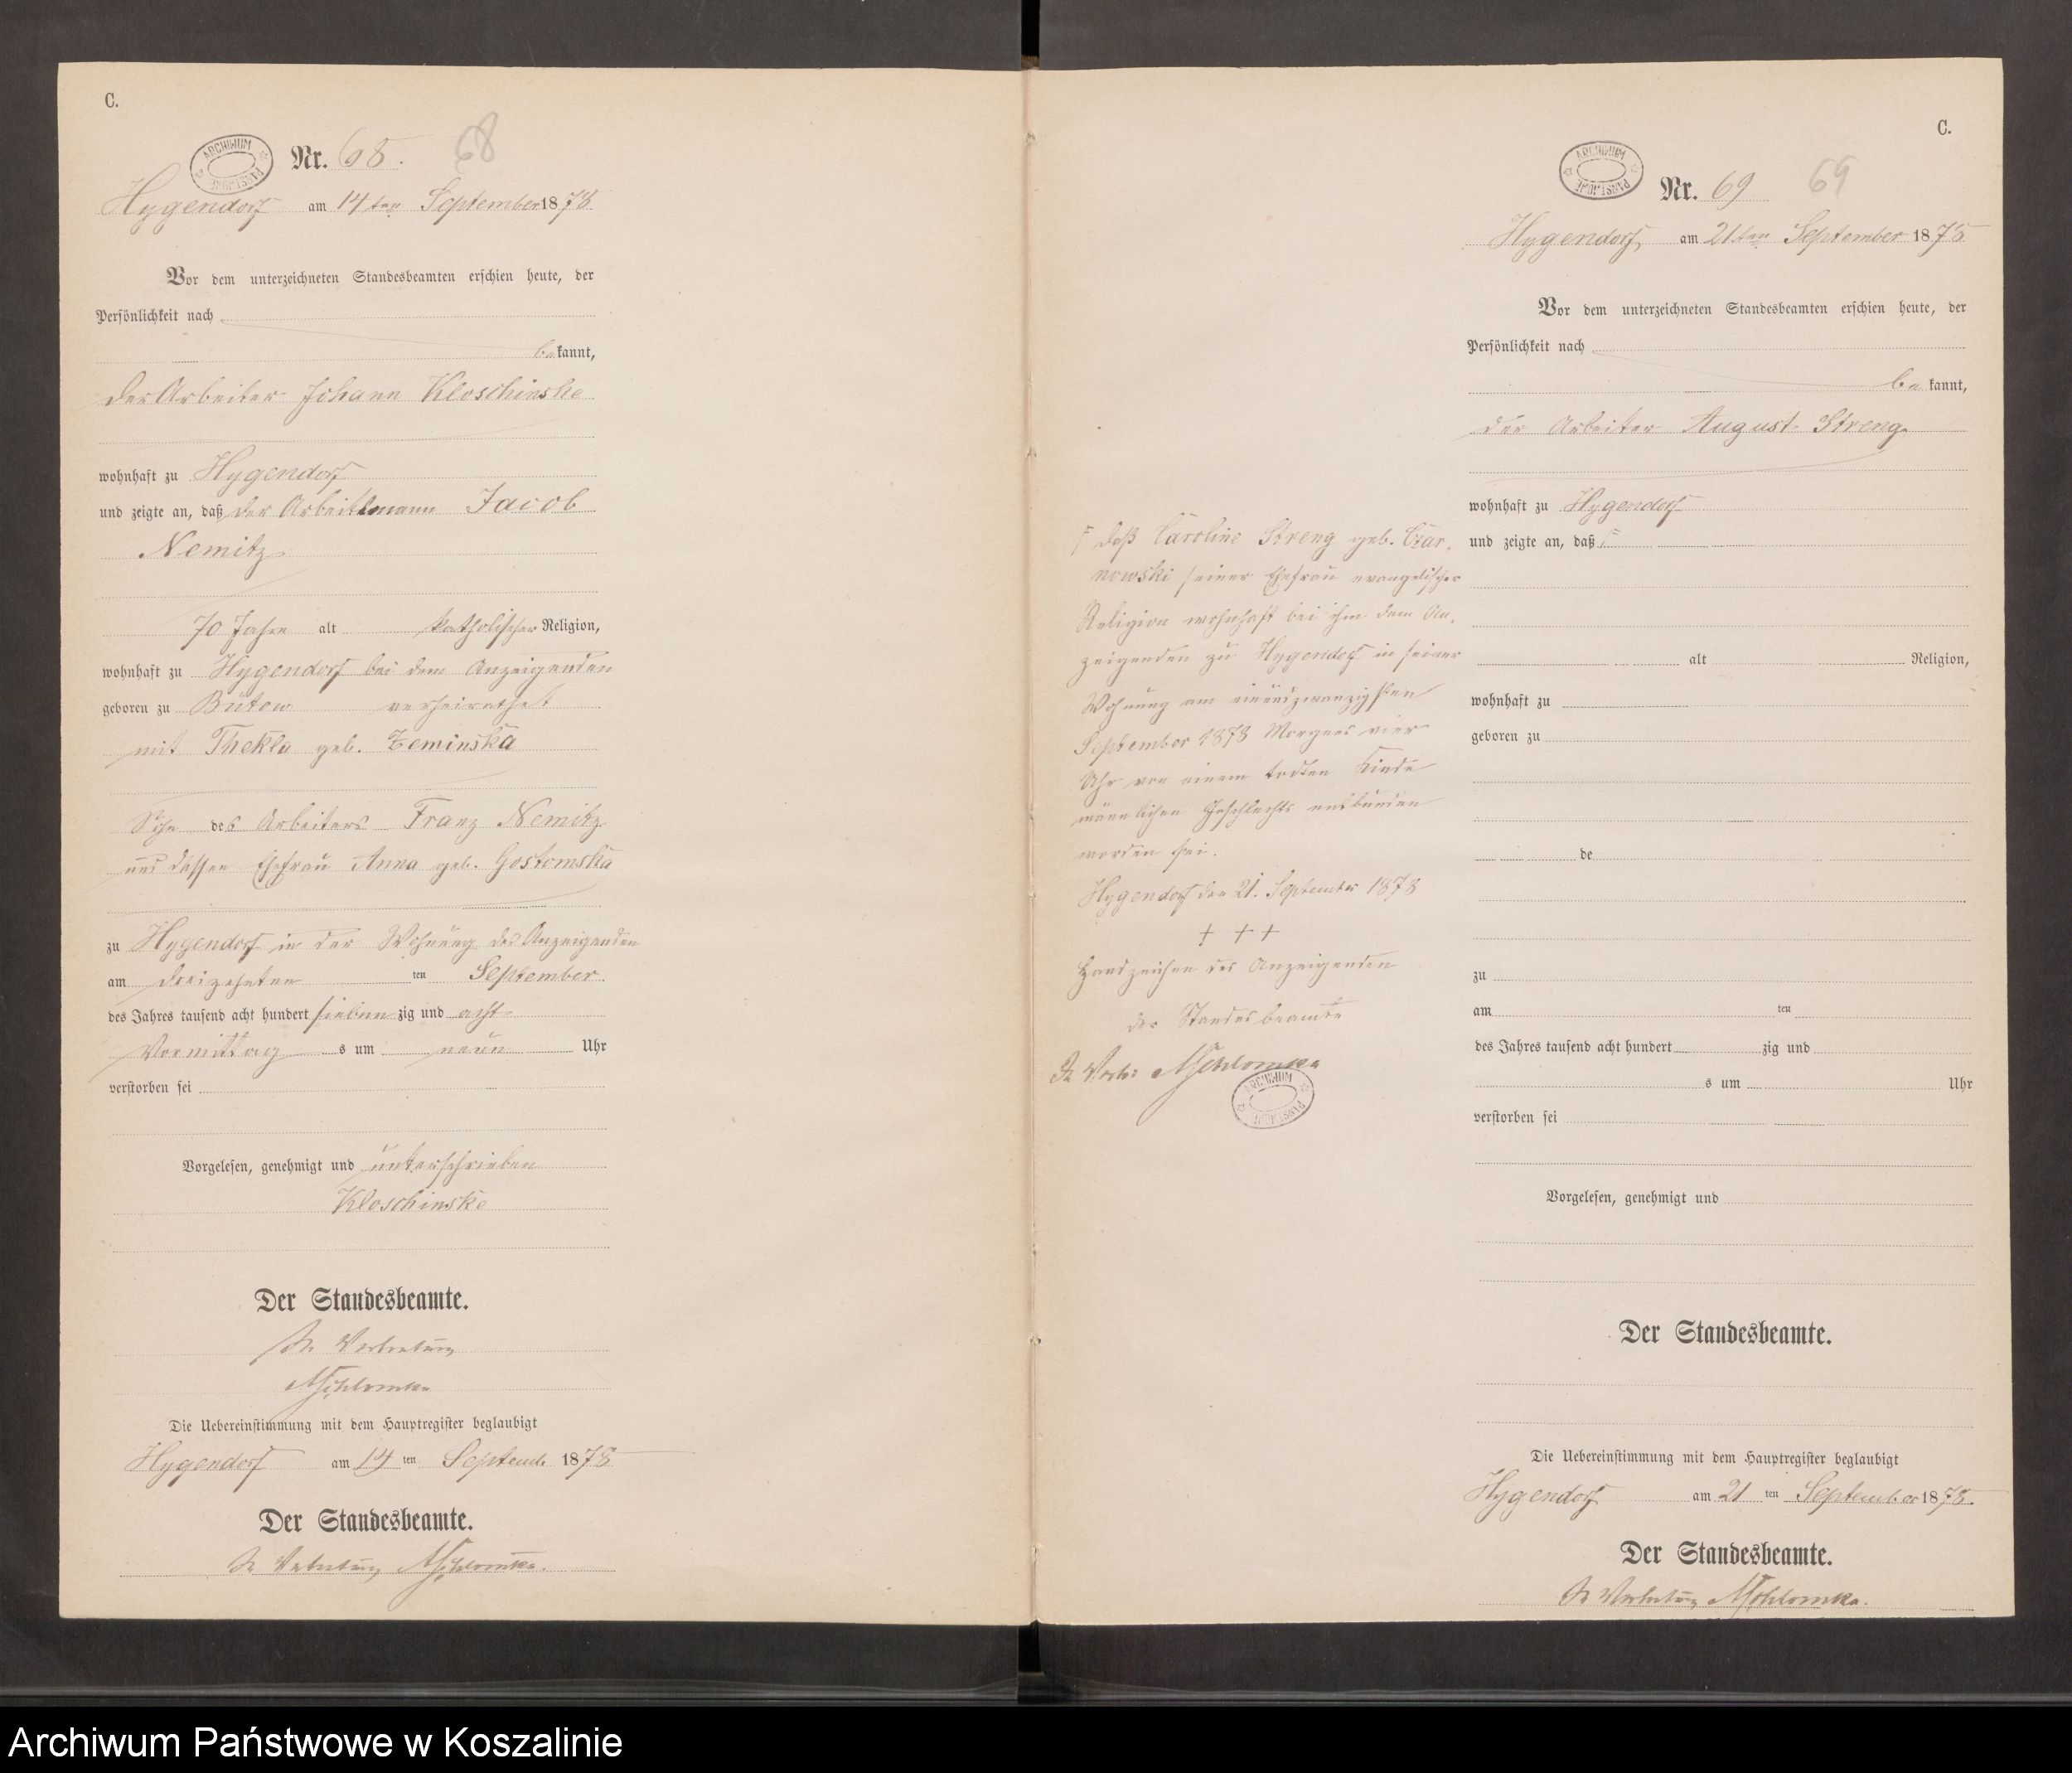 C.
ARCHIWUM PAŃSTWOWE
Nr. 68. 68
Hygendorf am 14ten September 1878
Vor dem unterzeichneten Standesbeamten erschien heute, der
Persönlichkeit nach
bekannt,
der Arbeiter Johann Kloschinske
wohnhaft zu Hygendorf
und zeigte an, daß der Arbeitsmann Jacob
Nemitz
70 Jahre alt katholischer Religion,
wohnhaft zu Hygendorf bei dem Anzeigenden
geboren zu Bütow verheirathet
mit Thekla geb. Zeminska
Sohn des Arbeiters Franz Nemitz
und dessen Ehefrau Anna geb. Gostomska
zu Hygendorf in der Wohnung des Anzeigenden
am dreizehnten ten September
des Jahres tausend acht hundert siebenzig und acht
Vormittags um neun Uhr
verstorben sei
Vorgelesen, genehmigt und unterschrieben
Kloschinske
Der Standesbeamte.
In Vertretung
Die Uebereinstimmung mit dem Hauptregister beglaubigt
Hygendorf am 14 ten Septemb. 1878
Der Standesbeamte.
In Vertretung
C.
ARCHIWUM PAŃSTWOWE
Nr. 69 69
Hygendorf, am 21ten September 1878
Vor dem unterzeichneten Standesbeamten erschien heute, der
Persönlichkeit nach
bekannt,
der Arbeiter August Streng
wohnhaft zu Hygendorf
und zeigte an, daß
alt Religion,
wohnhaft zu
geboren zu
de
zu
am ten
des Jahres tausend acht hundert zig und
s um Uhr
verstorben sei
Vorgelesen, genehmigt und
Der Standesbeamte.
Die Uebereinstimmung mit dem Hauptregister beglaubigt
Hygendorf am 21 ten September 1878.
Der Standesbeamte.
In Vertretung
daß Caroline Streng geb. Czar-
nowski seiner Ehefrau evangelischer
Religion wohnhaft bei ihm dem An-
zeigenden zu Hygendorf in seiner
Wohnung am einundzwanzigsten
September 1878 Morgens vier
Uhr von einem todten Kinde
männlichen Geschlechts entbunden
worden sei.
Hygendorf den 21. September 1878
+ + +
Handzeichen des Anzeigenden
der Standesbeamte
ARCHIWUM PAŃSTWOWE
Archiwum Państwowe w Koszalinie